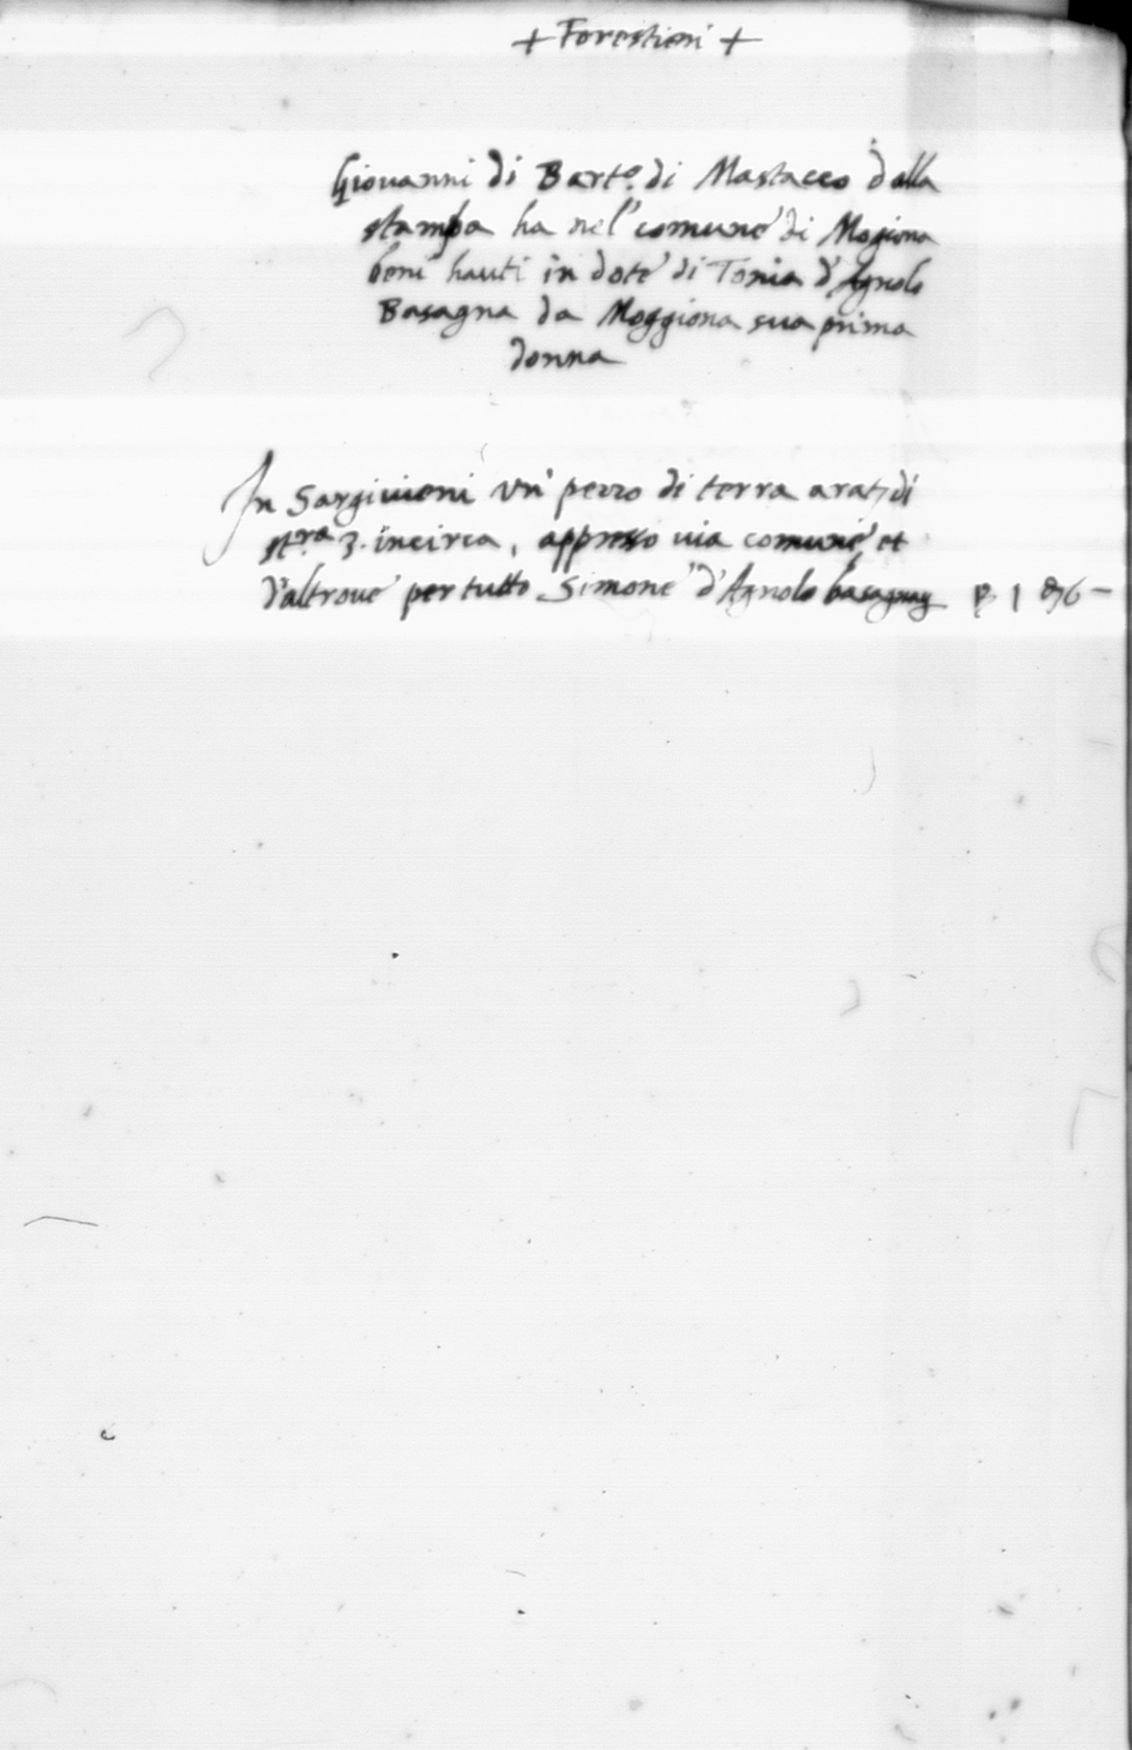 + Forestieri +
Giovanni di Barto. di Mastacco dalla
stampa ha nel comune di Mogiona
beni hauti in dote di Tonia d'Agnolo
Basagna da Moggiona sua prima
donna
In Sargivieni un pezzo di terra arat. di
st.ra 3. incirca, appresso via comune, et
d'altrove per tutto Simone d'Agnolo basagna